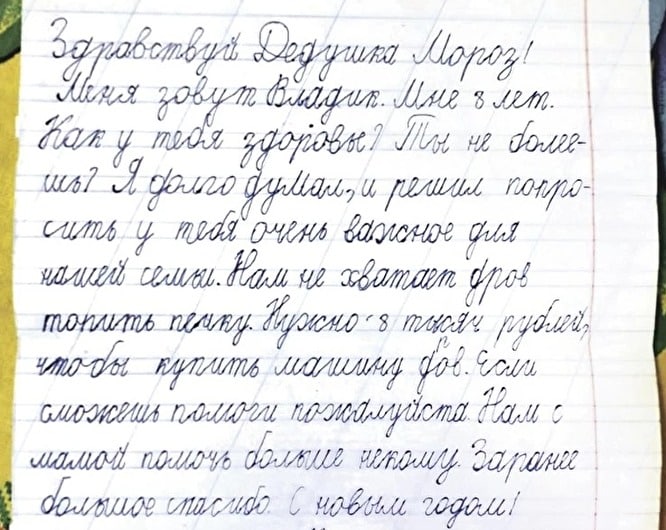 Здравствуй Дедушка Мороз!
Меня зовут Владик. Мне 8 лет.
Как у тебя здоровье? Ты не более-
шь? Я долго думал, и решил попро-
сить у тебя очень важное для
нашей семьи. Нам не хватает дров
топить печку. Нужно - 8 тысяч рублей,
чтобы купить машину дров. Если
сможешь помоги пожалуйста. Нам с
мамой помочь больше некому. Заранее
большое спасибо. С новым годом!